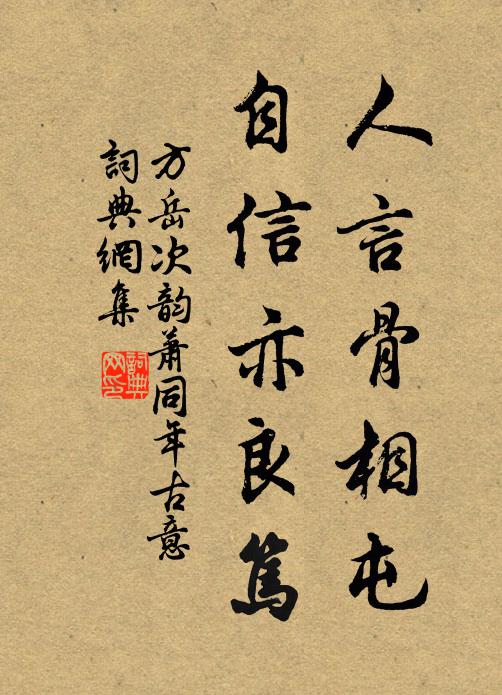 人言骨相屯
自信亦良篤
方岳次韵蕭同年古意
詞典網集
詞典网印